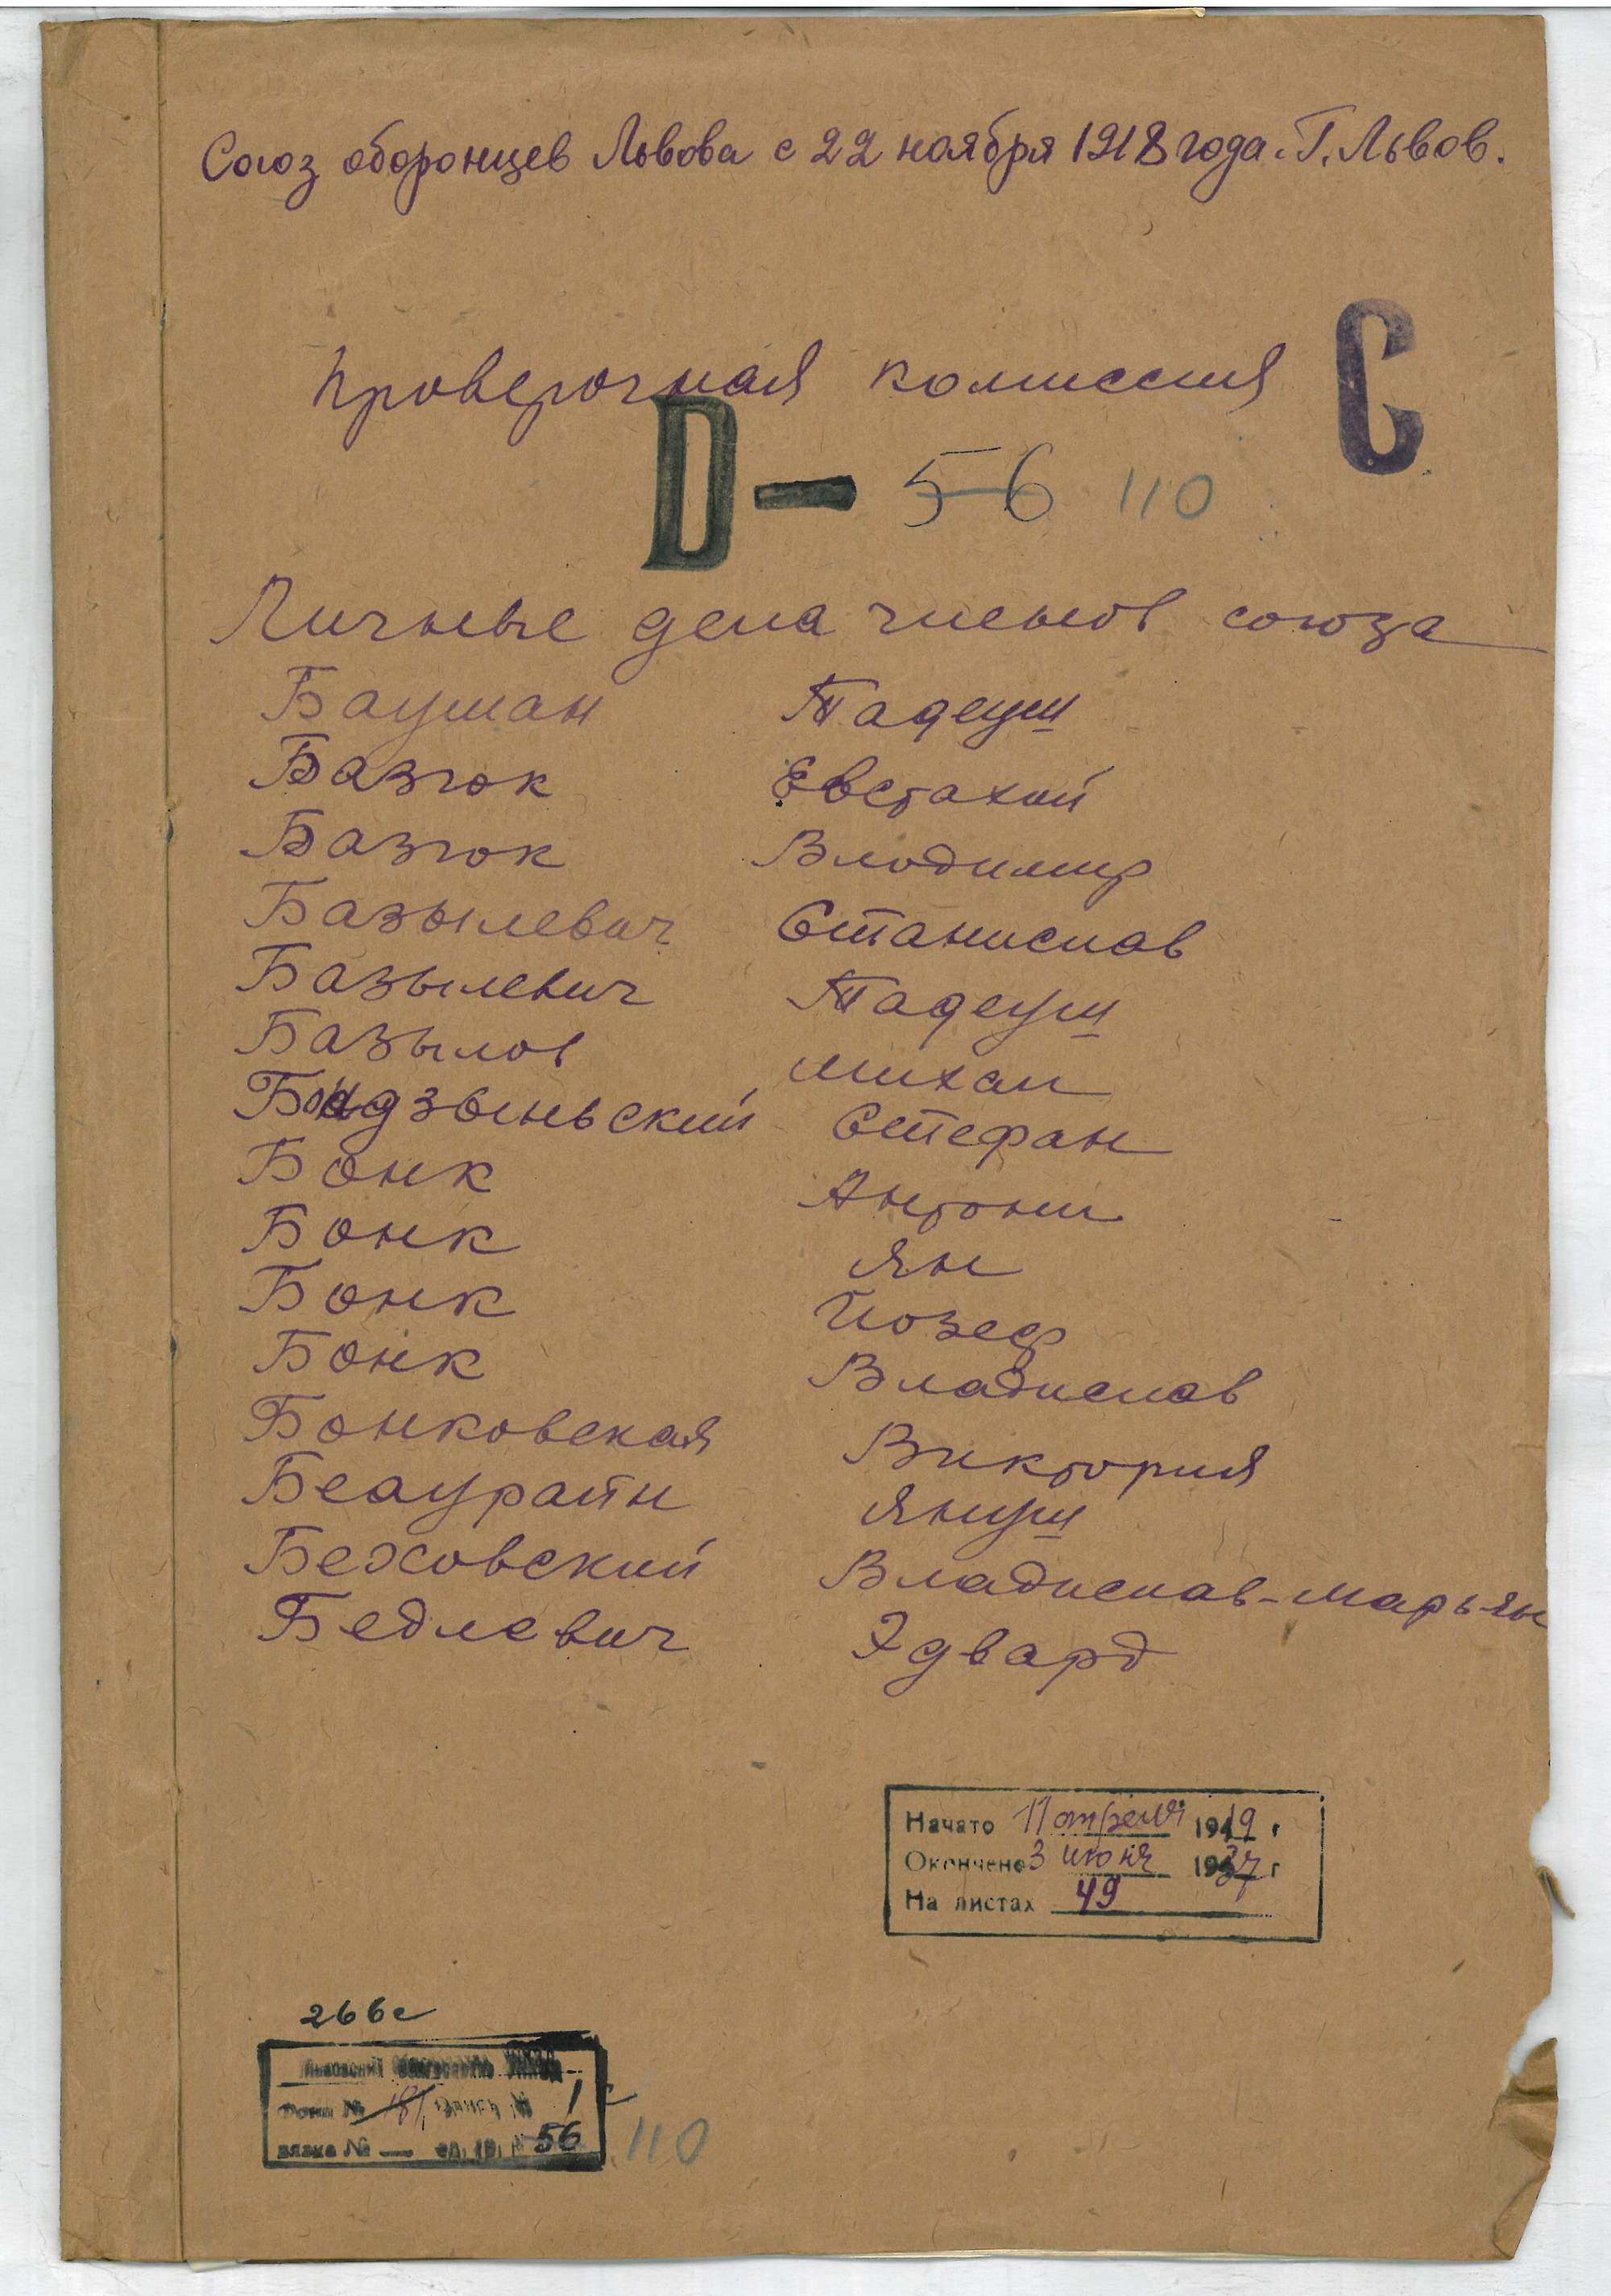 Союз оборонцев Львова с 22 ноября 1918 года. Г. Львов.
С
Проверочная комиссия
D — 56 110
Личные дела членов союза
Бауман Тадеуш
Базюк Евстахий
Базюк Влодимир
Базылевич Станислав
Базылевич Тадеуш
Базылов Михал
Бондзыньский Стефан
Бонк Антони
Бонк Ян
Бонк Йозеф
Бонк Владислав
Бонковская Виктория
Беауратн Януш
Беховский Владислав-Марьян
Бедлевич Эдвард
Начато 11 апреля 1919 г
Окончено 3 июня 1937 г
На листах 49
266с
Львовский
Фонд № 181, опись № 1 с
вязка № — ед. хр. 56 110